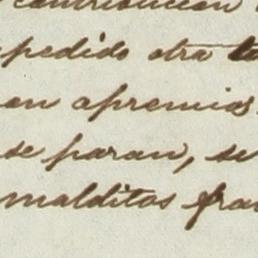 contribución
pedido otra
en apremios
se paran, se
malditos fra